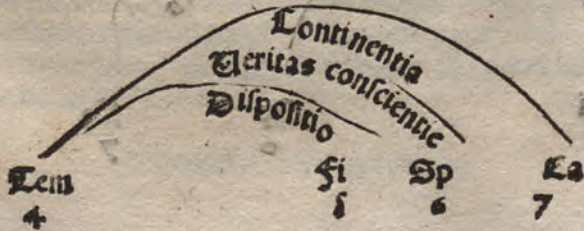 Continentia
Ueritas conscientie
Dispositio
Tem Fi Sp Ca
4 5 6 7